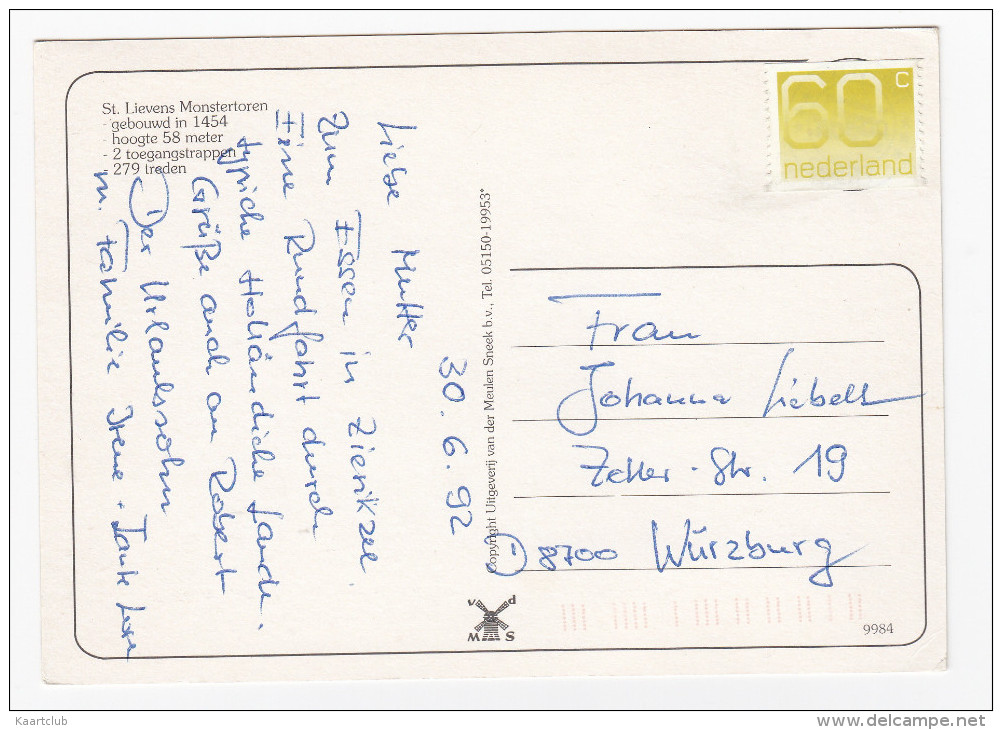 St. Lievens Monstertoren
- gebouwd in 1454
- hoogte 58 meter
- 2 toegangstrappen
- 279 treden
60 c
nederland
30.6.92
Liebe Mutter
Zum Essen in Zierikzee
Eine Rundfahrt durch
typiche Holländiche Landu.
Grüße auch an Robert
Der Urlaubssohn
m. Familie Irene + Tante
Copyright Uitgeverij van der Meulen Sneek b.v., Tel. 05150-19953*
Frau
Johanna Liebelt
Zeller-Str. 19
D 8700 Würzburg
v d
M S
9984
Kaartclub
delcampe.net